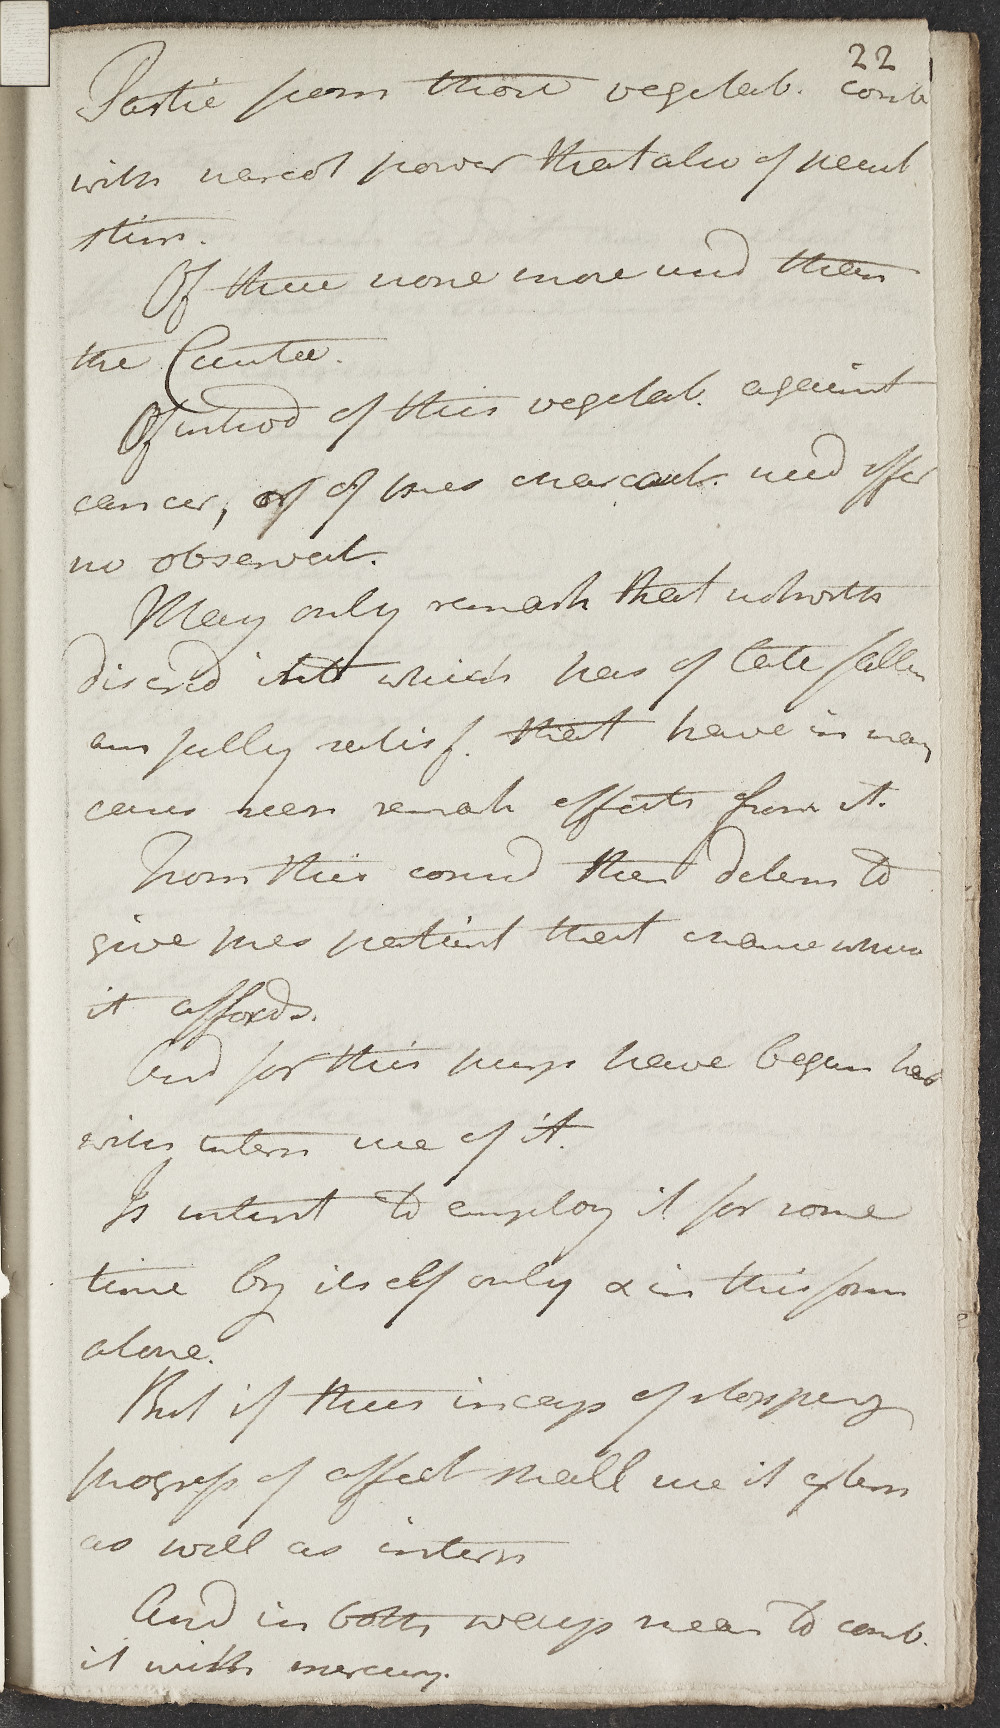 22
Partic from those vegetab. comb
with narcot power that also of pecul
stim.
Of these none more used than
the Cicuta.
Of introd of this vegetab. against
cancer, or of its charact. need offer
no observat.
May only remark that notwith
discred into which has of late fallen
am fully satisf. that have in many
cases seen remark effects from it.
From this consid then determ to
give this patient that chance which
it affords.
And for this purp have begun her
with intern use of it.
Is intent to employ it for some
time by itself only & in this form
alone.
But if this incap of stopping
progress of affect shall use it extern
as well as intern
And in both ways mean to comb.
it with mercury.